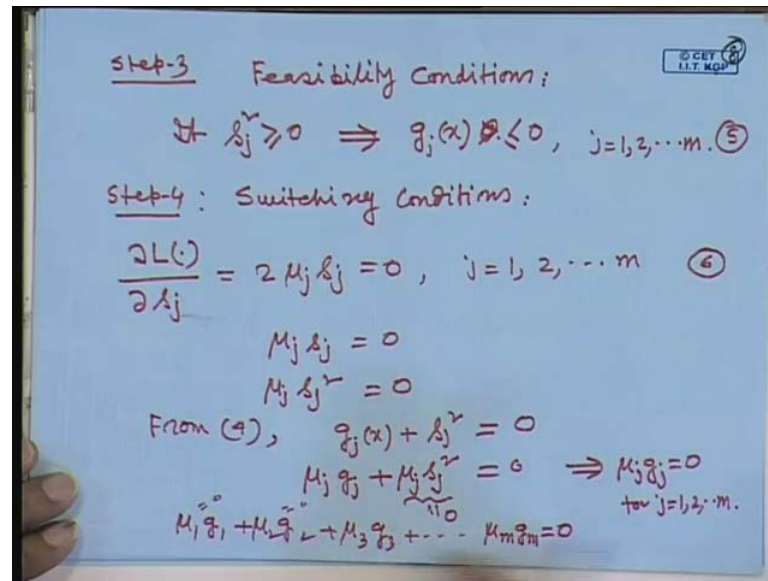 Step-3 Feasibility Conditions:
© CET
I.I.T. KGP
8
If s_j² ≥ 0 ⟹ g_j(x) ≤ 0, j=1,2,...m. ⑤
Step-4: Switching Conditions:
∂L(·)/∂s_j = 2 μ_j s_j = 0, j=1, 2, ... m ⑥
μ_j s_j = 0
μ_j s_j² = 0
From (4), g_j(x) + s_j² = 0
μ_j g_j + μ_j s_j² = 0 ⟹ μ_j g_j = 0
"0
for j=1,2,..m.
=0 =0
μ₁g₁ + μ₂g₂ + μ₃g₃ + ---- μ_m g_m = 0